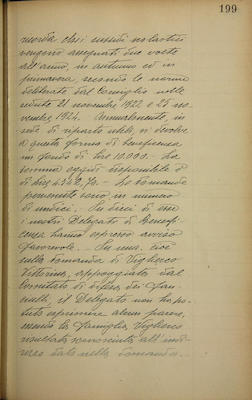 199
corda che i sussidi scolastici
vengono assegnati due volte
all'anno, in autunno ed in
primavera secondo le norme
deliberate dal Consiglio nelle
sedute 21 novembre 1922 e 25 no-
vembre 1924. Annualmente, in
sede di riparto utili, si devolve
a questa forma di beneficenza
un fondo di Lire 10.000. - La
somma oggi disponibile è
di Lire - Le domande
pervenute sono in numero
di undici. - Su dieci di esse
i nostri Delegati di Benefi-
cenza hanno espresso avviso
favorevole. - Su una, cioè
sulla domanda di Viglieno
Vittorina, appoggiata dal
Comitato di difesa dei fan-
ciulli, il Delegato non ha po-
tuto esprimere alcun parere,
essendo la famiglia Viglieno
risultata sconosciuta all'indi-
rizzo dato nella domanda. -